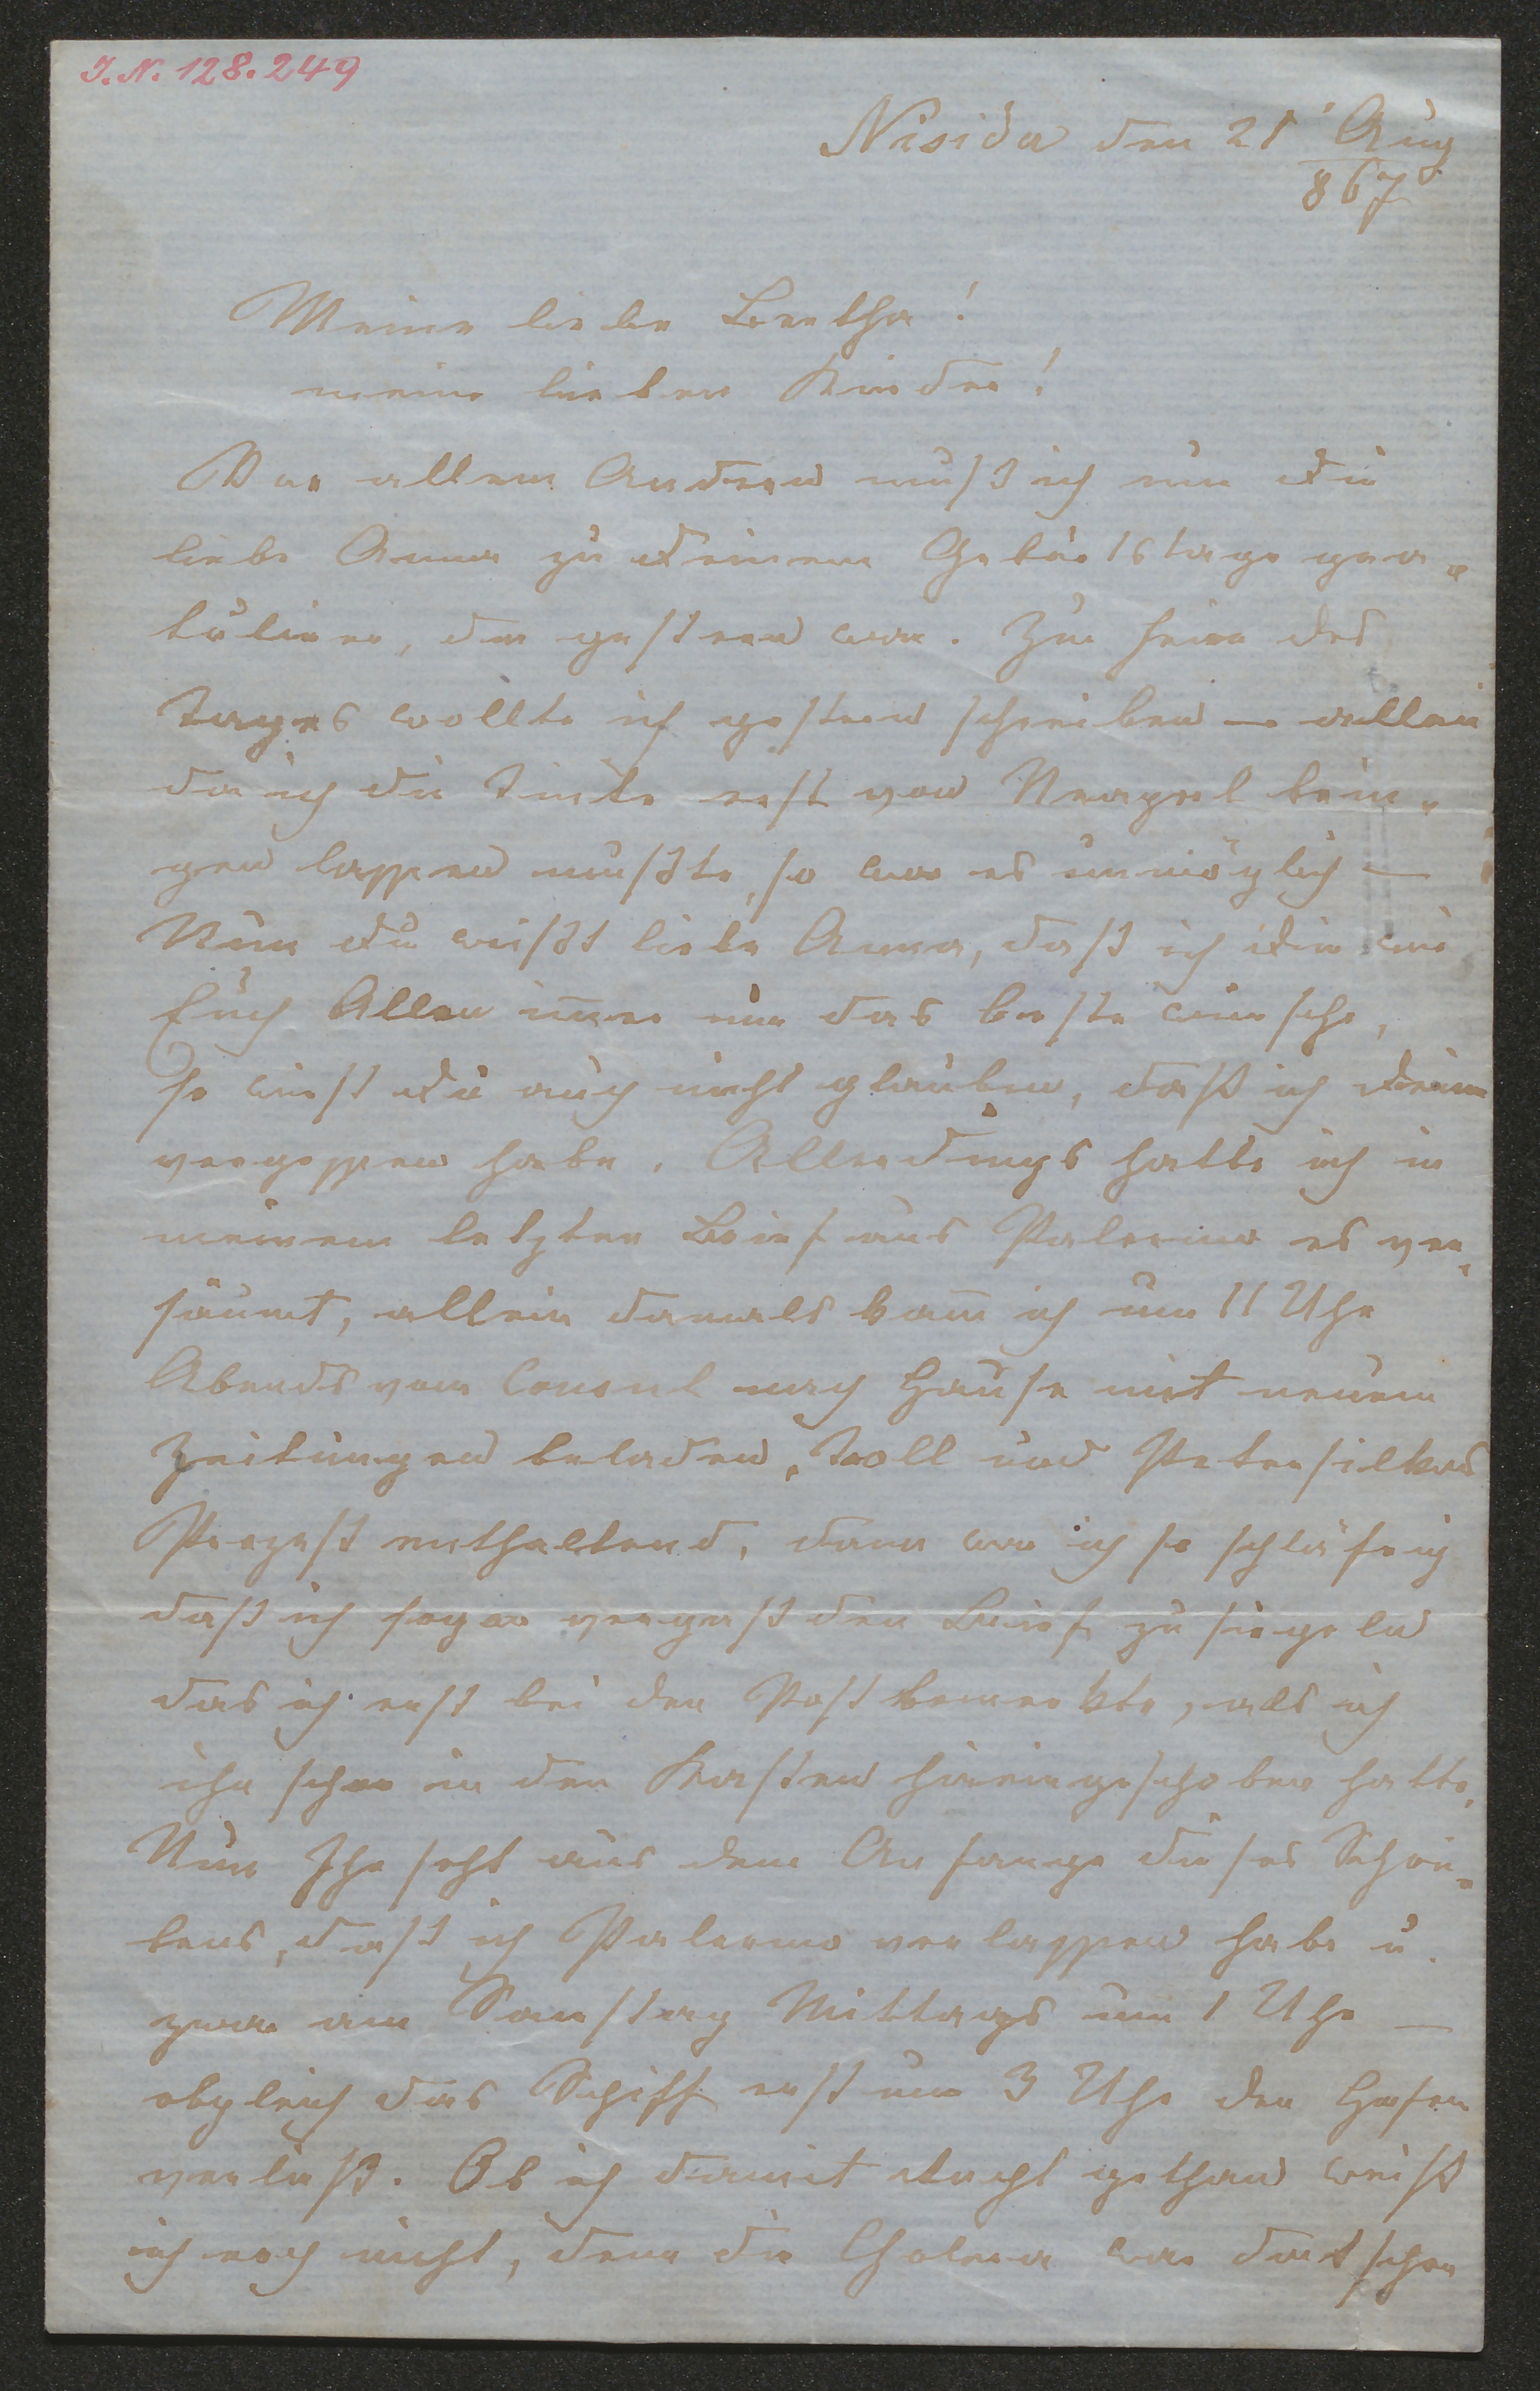 I.N. 128.249
Nisida den 21' Aug
867
Meine liebe Bertha!
meine lieben Kinder!
Vor allem Andern muß ich nun Dir
liebe Anna zu Deinem Geburtstage gra-
tuliren, der gestern war. Zur Feier des
Tages wollte ich gestern schreiben — allein
da ich die Tinte erst von Neapel brin-
gen lassen mußte, so war es unmöglich —
Nun Du weißt liebe Anna, daß ich Dir wie
Euch Allen im̄er nur das beste wünsche,
so wirst Du auch nicht glauben, daß ich Deiner
vergessen habe. Allerdings hatte ich in
meinem letzten Brief aus Palermo es ver-
säumt, allein damals kam̄ ich um 11 Uhr
Abends vom Consul nach Hause mit neuen
Zeitungen beladen, Toll und Petersilkas
Prozeß enthaltend, dann war ich so schläfrig
daß ich sogar vergaß den Brief zu siegeln
das ich erst bei der Post bemerkte, als ich
ihn schon in den Kasten hineingeschoben hatte.
Nun Ihr seht aus dem Anfange dieses Schrei-
bens, daß ich Palermo verlassen habe u.
zwar am Samstag Mittags um 1 Uhr —
obgleich das Schiff erst um 3 Uhr den Hafen
verließ. Ob ich damit Recht gethan weiß
ich noch nicht, denn die Cholera war dort schon